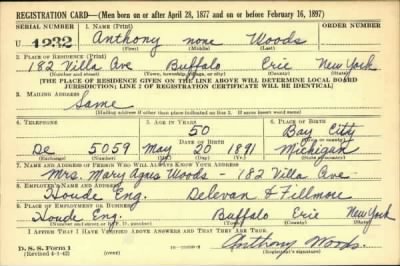 REGISTRATION CARD—(Men born on or after April 28, 1877 and on or before February 16, 1897)
SERIAL NUMBER 1. NAME (Print)
U 1232 Anthony none Woods
(First) (Middle) (Last)
2. PLACE OF RESIDENCE (Print)
182 Villa Ave Buffalo Erie New York
(Number and street) (Town, township, village, or city) (County) (State)
[THE PLACE OF RESIDENCE GIVEN ON THE LINE ABOVE WILL DETERMINE LOCAL BOARD
JURISDICTION; LINE 2 OF REGISTRATION CERTIFICATE WILL BE IDENTICAL]
3. MAILING ADDRESS
Same
(Mailing address if other than place indicated on line 2. If same insert word same)
4. TELEPHONE 5. AGE IN YEARS 6. PLACE OF BIRTH
50 Bay City
DATE OF BIRTH (Town or county)
De 5059 May 20 1891 Michigan
(Exchange) (Number) (Mo.) (Day) (Yr.) (State or country)
7. NAME AND ADDRESS OF PERSON WHO WILL ALWAYS KNOW YOUR ADDRESS
Mrs. Mary Agnes Woods - 182 Villa Ave
8. EMPLOYER'S NAME AND ADDRESS
Houde Eng. Delevan & Fillmore
9. PLACE OF EMPLOYMENT OR BUSINESS
Houde Eng. Buffalo Erie New York
(Number and street or R. F. D. number) (Town) (County) (State)
I AFFIRM THAT I HAVE VERIFIED ABOVE ANSWERS AND THAT THEY ARE TRUE.
D. S. S. Form 1
(Revised 4-1-42) (over)
Anthony Woods